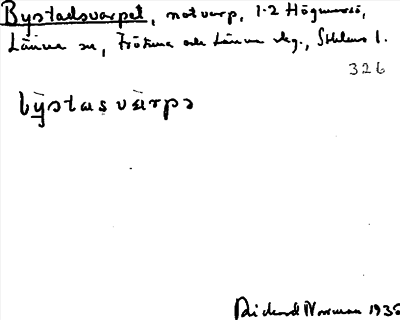 Bystadsvarpet, notvarp, 1-2 Högmarsö,
Länna sn, Frötuna och Länna skg., Sthlms l.
326
by̱stas va̱rpə
Rickard Norrman 1935